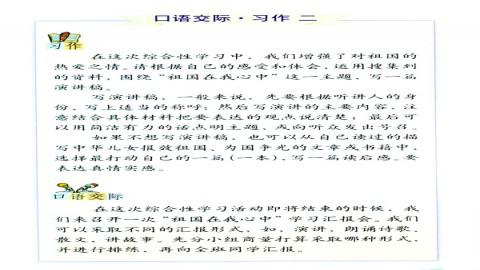 口语交际·习作 二
习作
在这次综合性学习中,我们增强了对祖国的
热爱之情。请根据自己的感受和体会,运用搜集到
的资料,围绕“祖国在我心中”这一主题,写一篇
演讲稿。
写演讲稿,一般来说,先要根据听讲人的身
份,写上适当的称呼;然后写演讲的主要内容,注
意结合具体材料把要表达的观点说清楚;最后可
以用简洁有力的话点明主题,或向听众发出号召。
如果不想写演讲稿,也可以从自己读过的描
写中华儿女报效祖国、为国争光的文章或书籍中,
选择最打动自己的一篇(一本),写一篇读后感。要
表达真情实感。
口语交际
在这次综合性学习活动即将结束的时候,我
们来召开一次“祖国在我心中”学习汇报会。我们
可以采取不同的汇报形式,如,演讲,朗诵诗歌、
散文,讲故事。先分小组商量打算采取哪种形式,
并进行排练,再向全班同学汇报。